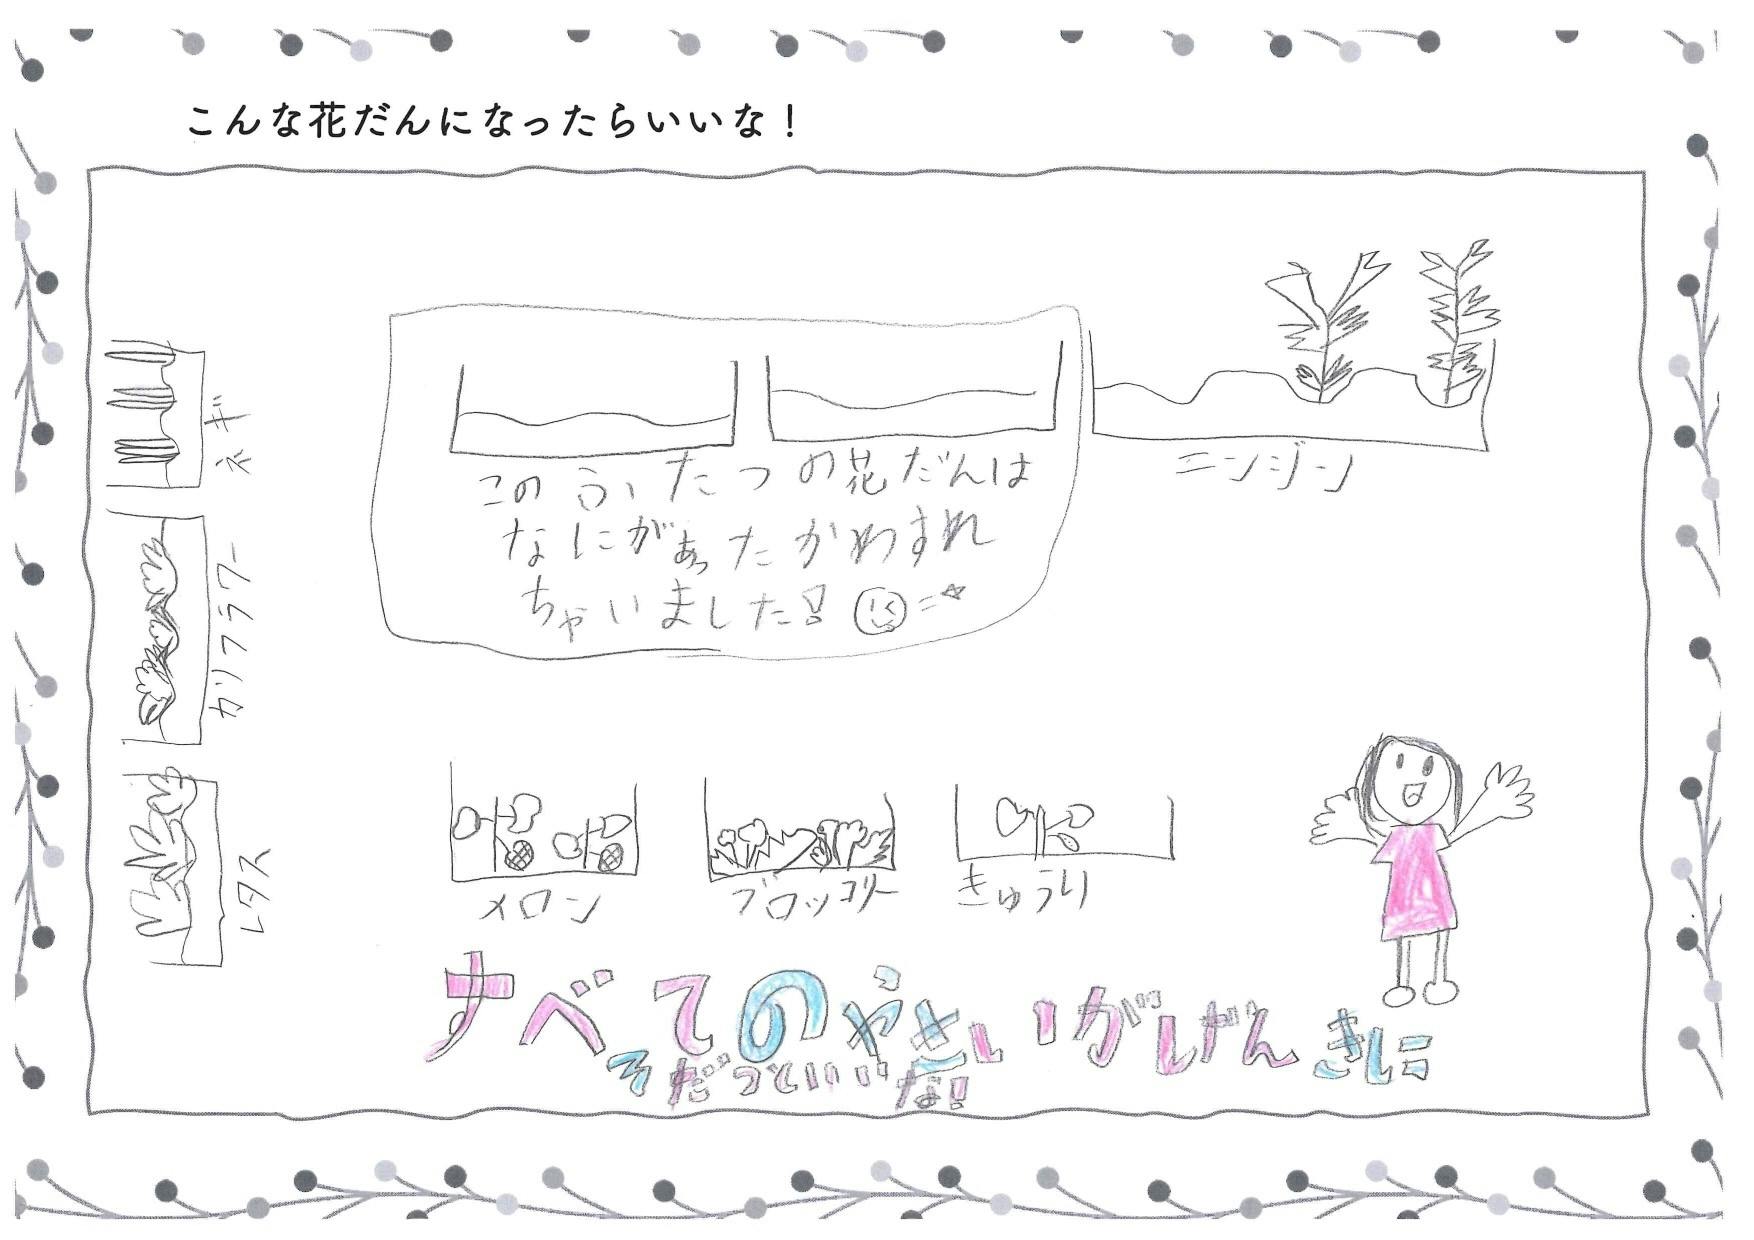 こんな花だんになったらいいな！
ネギ
カリフラワー
レタス
このふたつの花だんは
なにがあったかわすれ
ちゃいました！
ニンジン
メロン
ブロッコリー
きゅうり
すべてのやさいがげんきに
そだっていいな！